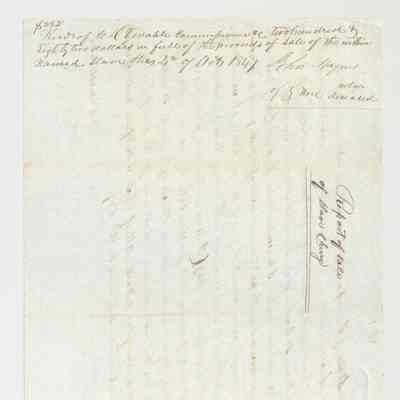 $282
Recd of W C Venable Commissioner &c Two hundred &
Eighty two dollars in full of the proceeds of sale of the within
named slave this 4th of Oct 1847
John
of
deceased
Report of sale
of slave